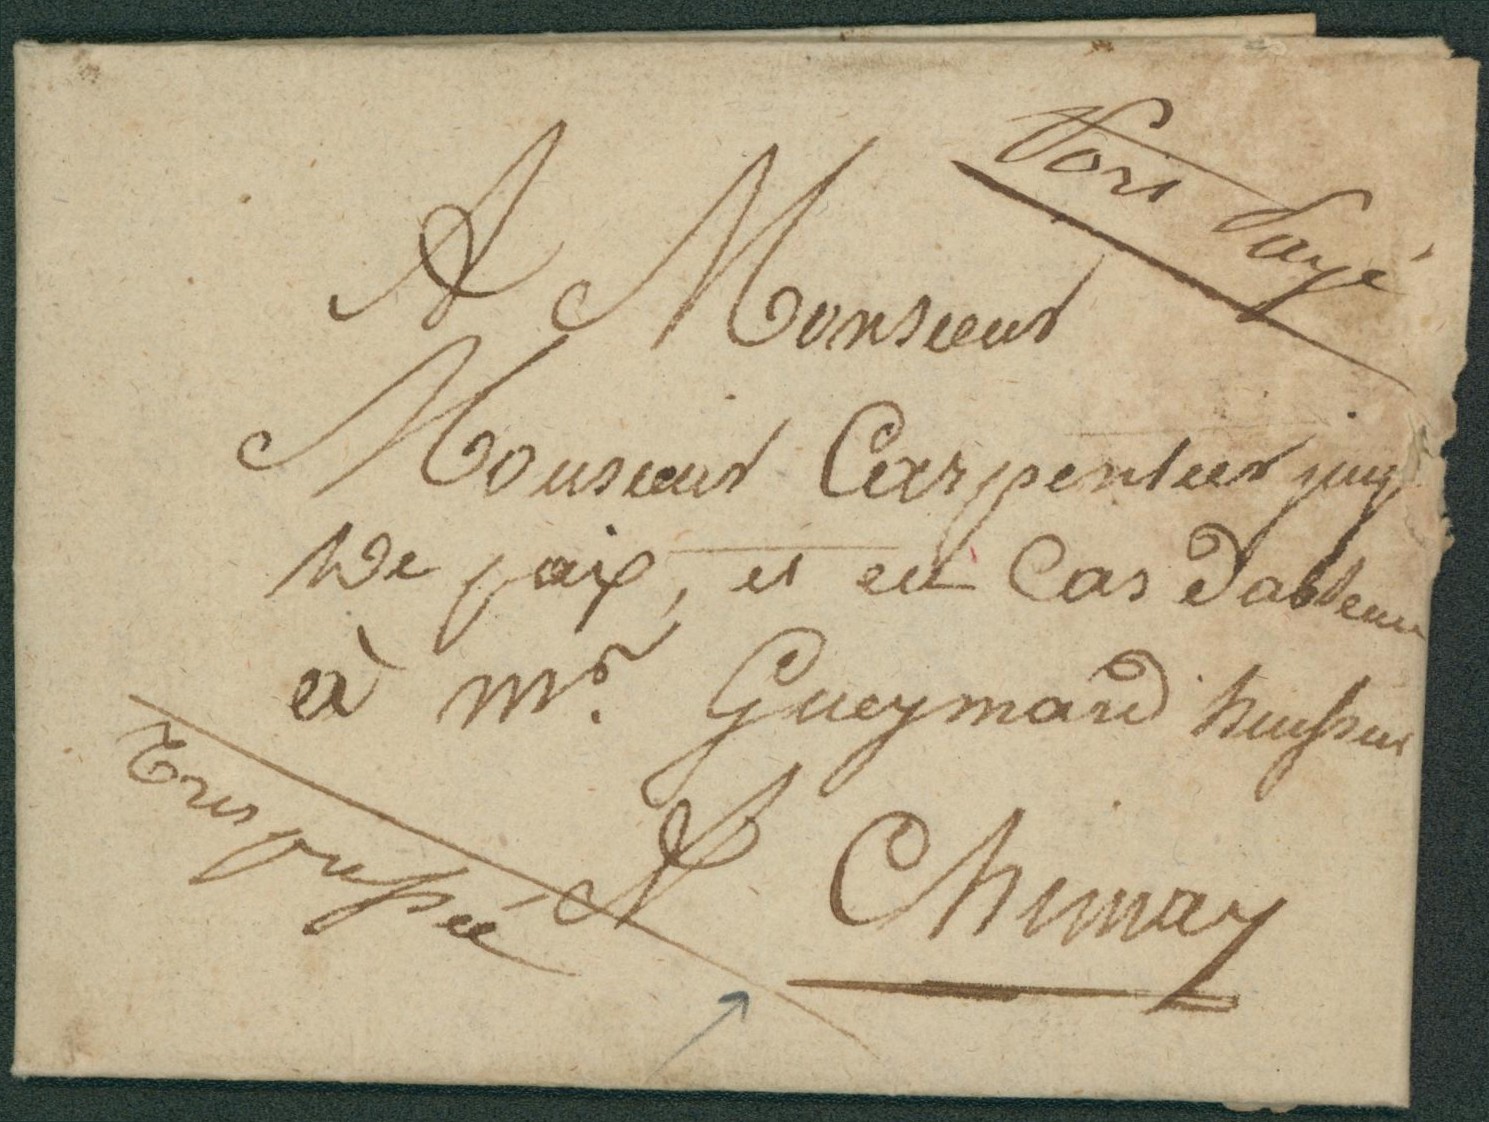 Port Payé
A Monsieur
Monsieur Carpentier juge
De paix, et en Cas Dabsence
à Mr. Gueymard huissier
A Chimay
Tres pressée